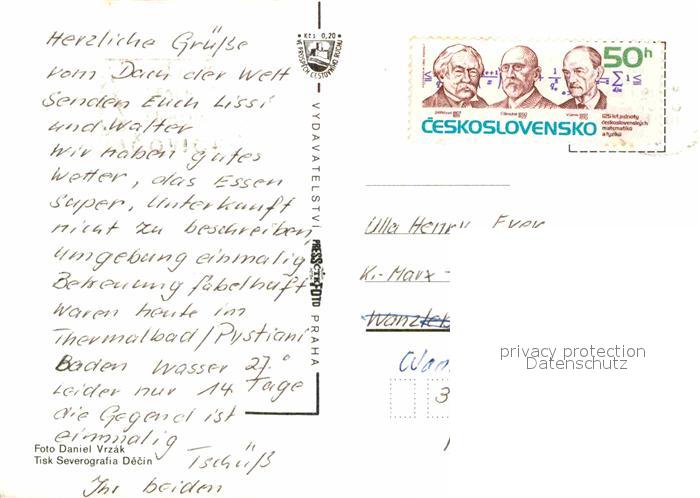 Herzliche Grüße
vom Dach der Welt
senden Euch Lissi
und Walter
Wir haben gutes
Wetter, das Essen
super, Unterkunft
nicht zu beschreiben,
Umgebung einmalig
Betreuung fabelhaft
waren heute im
Thermalbad/Pystiani
Baden Wasser 27°
Leider nur 14 Tage
die Gegend ist
einmalig
Tschüß
Ihr beiden
Foto Daniel Vrzák
Tisk Severografia Děčín
Kčs 0,20
VE PROSPĚCH CESTOVNÍHO RUCHU
VYDAVATELSTVÍ PRESSFOTO PRAHA
ČTK
50h
ČESKOSLOVENSKO
125 let jednoty
československých
matematiků
a fyziků
Ulla Henry
K.-Marx-
Wanzleb
Wan
3
privacy protection
Datenschutz